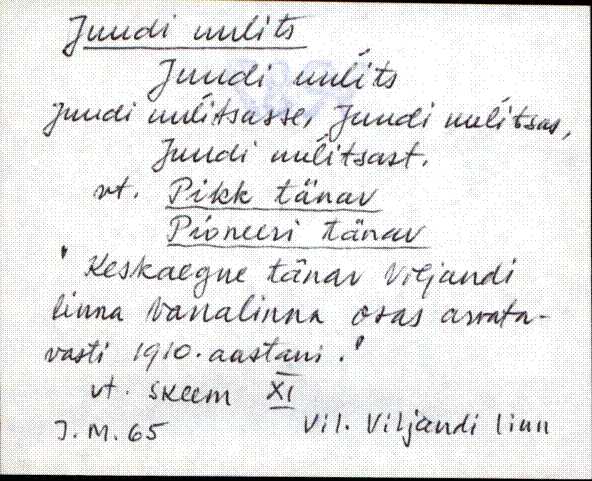 Juudi uulits
Juudi uulits
Juudi uulitsasse, Juudi uulitsas,
Juudi uulitsast.
vt. Pikk tänav
Pioneeri tänav
'Keskaegne tänav Viljandi
linna vanalinna osas arvata-
vasti 1910. aastani.'
vt. skeem XI
J.M. 65 Vil. Viljandi linn